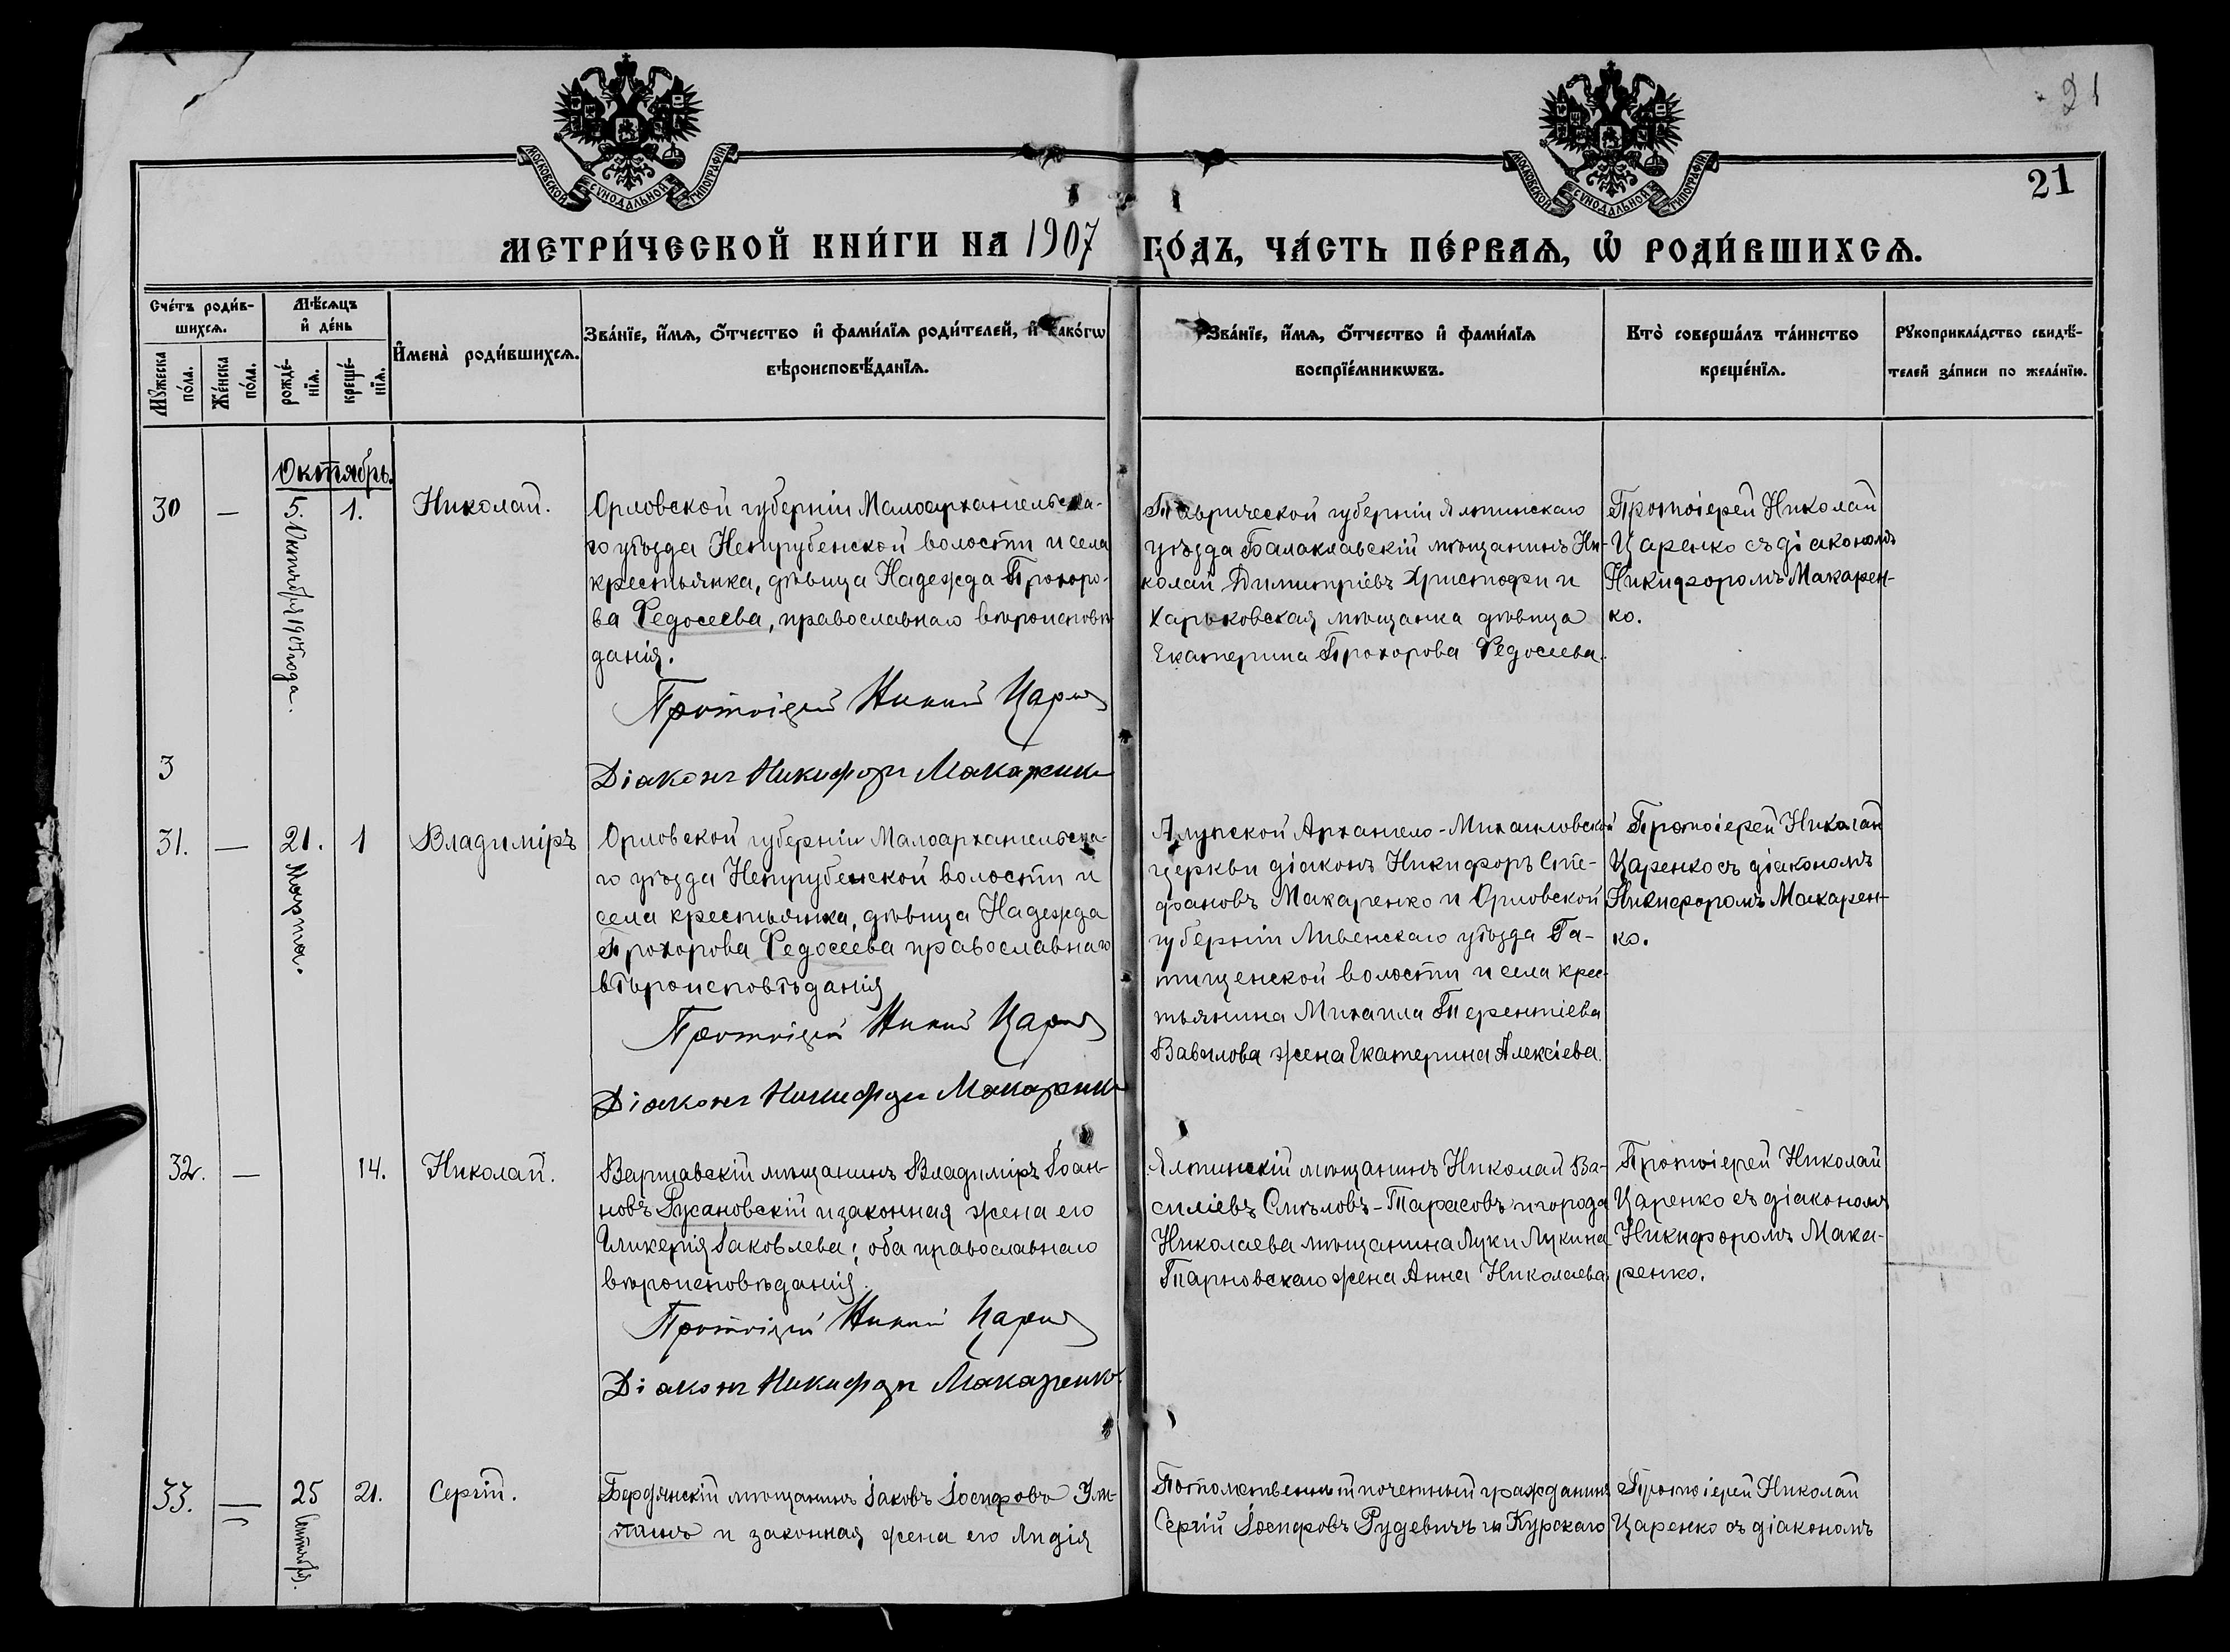 21
МОСКОВСКОЙ СѴНОДАЛЬНОЙ ТИПОГРАФІИ
МОСКОВСКОЙ СѴНОДАЛЬНОЙ ТИПОГРАФІИ
21
МЕТРИ́ЧЕСКОЙ КНИ́ГИ НА 1907 ГО́ДЪ, ЧА́СТЬ ПЕ́РВАѦ, Ѡ҆ РОДИ́ВШИХСѦ.
Сче́тъ роди́в-
шихсѧ.
Мꙋ́жеска
по́ла.
Же́нска
по́ла.
Мѣ́сѧцъ
и҆ де́нь
рожде́-
нїѧ.
креще́-
нїѧ.
И҆мена̀ роди́вшихсѧ.
Зва́нїе, и҆́мѧ, ѻ҆́тчество и҆ фами́лїѧ роди́телей, и҆ како́гѡ
вѣроисповѣ́данїѧ.
Зва́нїе, и҆́мѧ, ѻ҆́тчество и҆ фами́лїѧ
воспрїе́мникѡвъ.
Кто̀ соверша́лъ та́инство
креще́нїѧ.
Рꙋкоприкла́дство свидѣ́-
телей за́писи по жела́нїю.
Октябрь.
30
—
5.
Октября 1905 года.
1.
Николай.
Орловской губерніи Малоархангельска-
го уѣзда Непрубенской волости и села
крестьянка, дѣвица Надежда Прохоро-
ва Федосеева, православнаго вѣроисповѣ
данія.
Протоіерей Николай Царенко
Діаконъ Никифоръ Макаренко
Таврической губерніи Ялтинскаго
уѣзда Балаклавскій мѣщанинъ Ни-
колай Димитріевъ Христофи и
Харьковская мѣщанка дѣвица
Екатерина Прохорова Федосеева.
Протоіерей Николай
Царенко съ діакономъ
Никифоромъ Макарен-
ко.
3
31.
—
21.
Марта.
1
Владиміръ
Орловской губерніи Малоархангельска-
го уѣзда Непрубенской волости и
села крестьянка, дѣвица Надежда
Прохорова Федосеева православнаго
вѣроисповѣданія
Протоіерей Николай Царенко
Діаконъ Никифоръ Макаренко
Алупской Архангело-Михаиловской
церкви діаконъ Никифоръ Сте-
фановъ Макаренко и Орловской
губерніи Ливенскаго уѣзда Га-
тищенской волости и села крес-
тьянина Михаила Терентіева
Вавилова жена Екатерина Алексіева.
Протоіерей Николай
Царенко съ діакономъ
Никифоромъ Макарен-
ко.
32.
—
14.
Николай.
Варшавскій мѣщанинъ Владиміръ Іоан-
новъ Русановскій и законная жена его
Гликерія Іаковлева; оба православнаго
вѣроисповѣданія.
Протоіерей Николай Царенко
Діаконъ Никифоръ Макаренко
Ялтинскій мѣщанинъ Николай Ва-
силіевъ Смѣловъ-Тарасовъ и города
Николаева мѣщанина Луки Лукина
Тарновскаго жена Анна Николаева
Протоіерей Николай
Царенко съ діакономъ
Никифоромъ Мака-
ренко.
33.
—
25
Сентября.
21.
Сергій.
Бердянскій мѣщанинъ Іаковъ Іосифовъ
и законная жена его Лидія
Потомственный почетный гражданинъ
Сергій Іосифовъ Рудевичъ и Курскаго
Протоіерей Николай
Царенко съ діакономъ